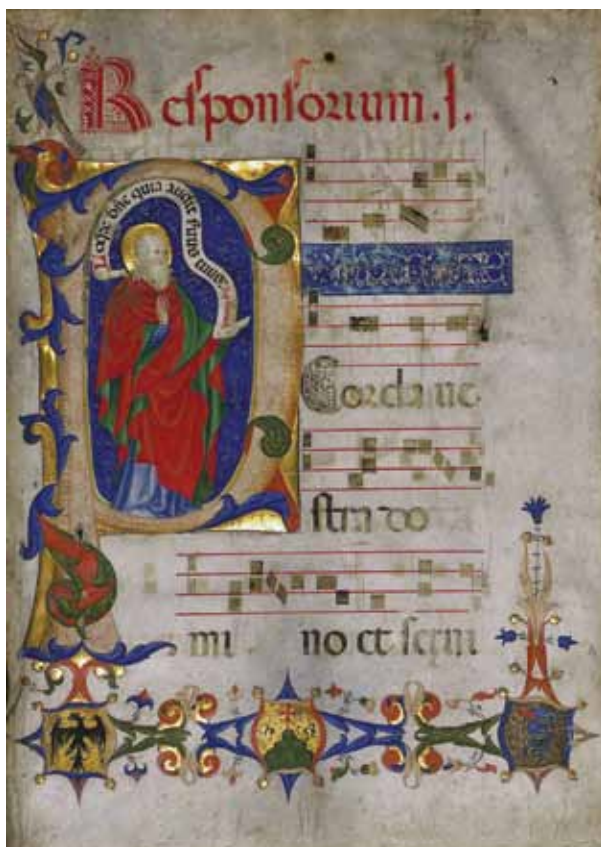 Responsorium .I.
Loqre dne quia audit seruus tuus
P
Corda ue
stra do
mi no et serui